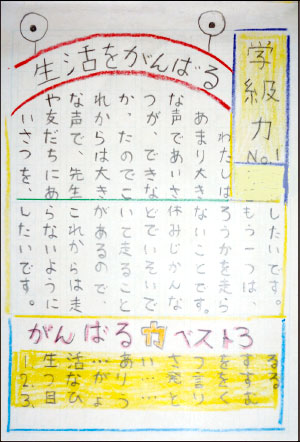 生活をがんばる
学級力
No.1
わたしは
あまり大き
な声であいさ
つができな
かったのでこ
れからは大き
な声で、先生
や友だちにあ
いさつを、
したいです。
もう一つは、
ろうかを走ら
ないことです。
休みじかんな
どでいそいで
いて走ること
があるので、
これからは走
らないように
したいです。
がんばる力ベスト3
1.生活…あいさつをする
2.つながり…発言をする
3.目ひょう…とりくむ